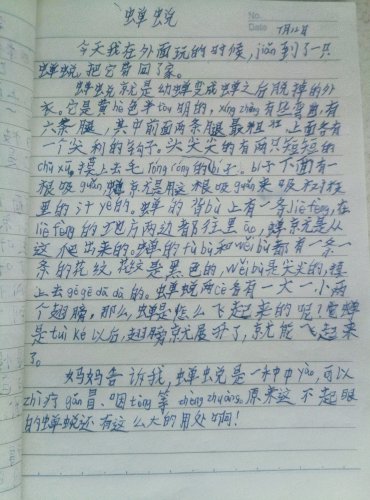 蝉蜕
No.
Date 7月12日
今天我在外面玩的时候，jiǎn到了一只
蝉蜕，把它带回了家。
蝉蜕就是幼蝉变成蝉之后脱掉的外
衣。它是黄hè色半tòu明的，xíng zhuàng有些弯曲，有
六条腿，其中前面两条腿最粗壮，上面各有
一个尖利的钩子。头尖尖的有两只短短的
chù xū，摸上去毛róng róng的bí子。bí子下面有一
根吸guǎn，蝉就是用这根吸guǎn来吸
里的汁yè的。蝉的背bù上有一条liè fèng，在
liè fèng的地方两边都往里āo，蝉就是从
这爬出来的。蝉的fù bù和wěi bù都有一条一
条的花纹，花纹是黑色的，wěi bù是尖尖的，摸
上去gē gē dā dā的。蝉蜕两cè各有一大一小两
个翅膀，那么，蝉是怎么飞起来的呢？蝉
是tuì ké以后，翅膀就展开了，就能飞起来
了。
妈妈告诉我，蝉蜕是一种中yào，可以
zhì疗gǎn冒、咽tòng等zhèng zhuàng。原来这不起眼
的蝉蜕还有这么大的用处啊！